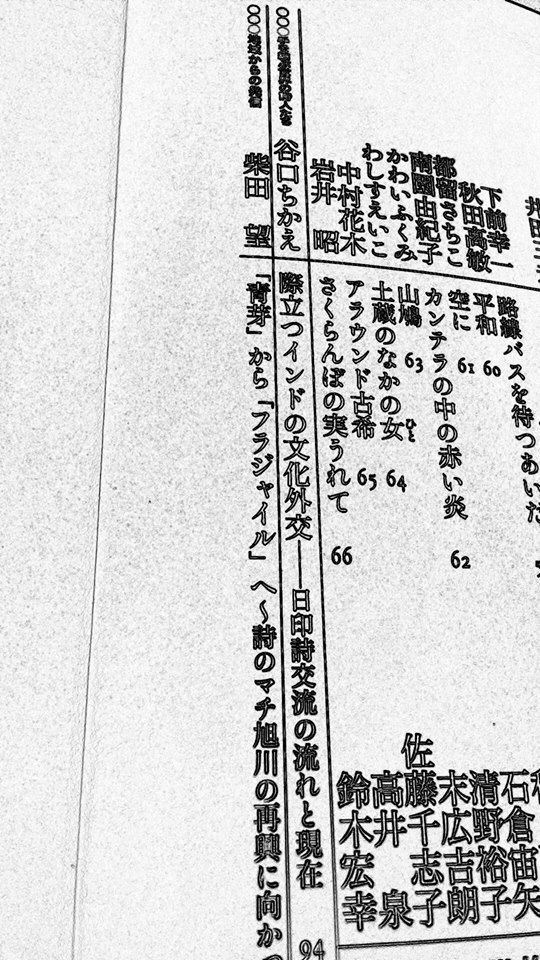 下前幸一 路線バスを待つあいだ
秋田高敏 平和 60
都留さちこ 空に 61
南園由紀子 カンテラの中の赤い炎 62
かわいふくみ 山鳩 63
わしすえいこ 土蔵のなかの女 ひと 64
中村花木 アラウンド古希 65
岩井 昭 さくらんぼの実うれて 66
石倉宙矢
清野裕子
末広吉朗
佐藤千志子
高井 泉
鈴木宏幸
谷口ちかえ 際立つインドの文化外交――日印詩交流の流れと現在 94
○○○地域からの発信 柴田 望 「青芽」から「フラジャイル」へ～詩のマチ旭川の再興に向かっ